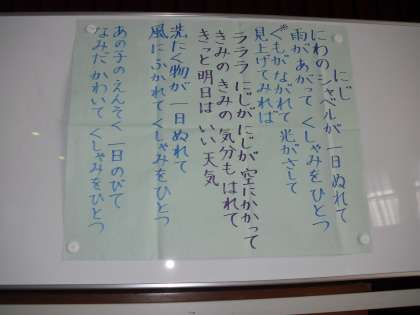 にじ
にわのシャベルが 一日ぬれて
雨があがって くしゃみをひとつ
くもがながれて 光がさして
見上げてみれば
ラララ にじがにじが 空にかかって
きみのきみの 気分もはれて
きっと明日は いい天気
洗たく物が 一日ぬれて
風にふかれてくしゃみをひとつ
あの子のえんそく 一日のびて
なみだかわいて くしゃみをひとつ